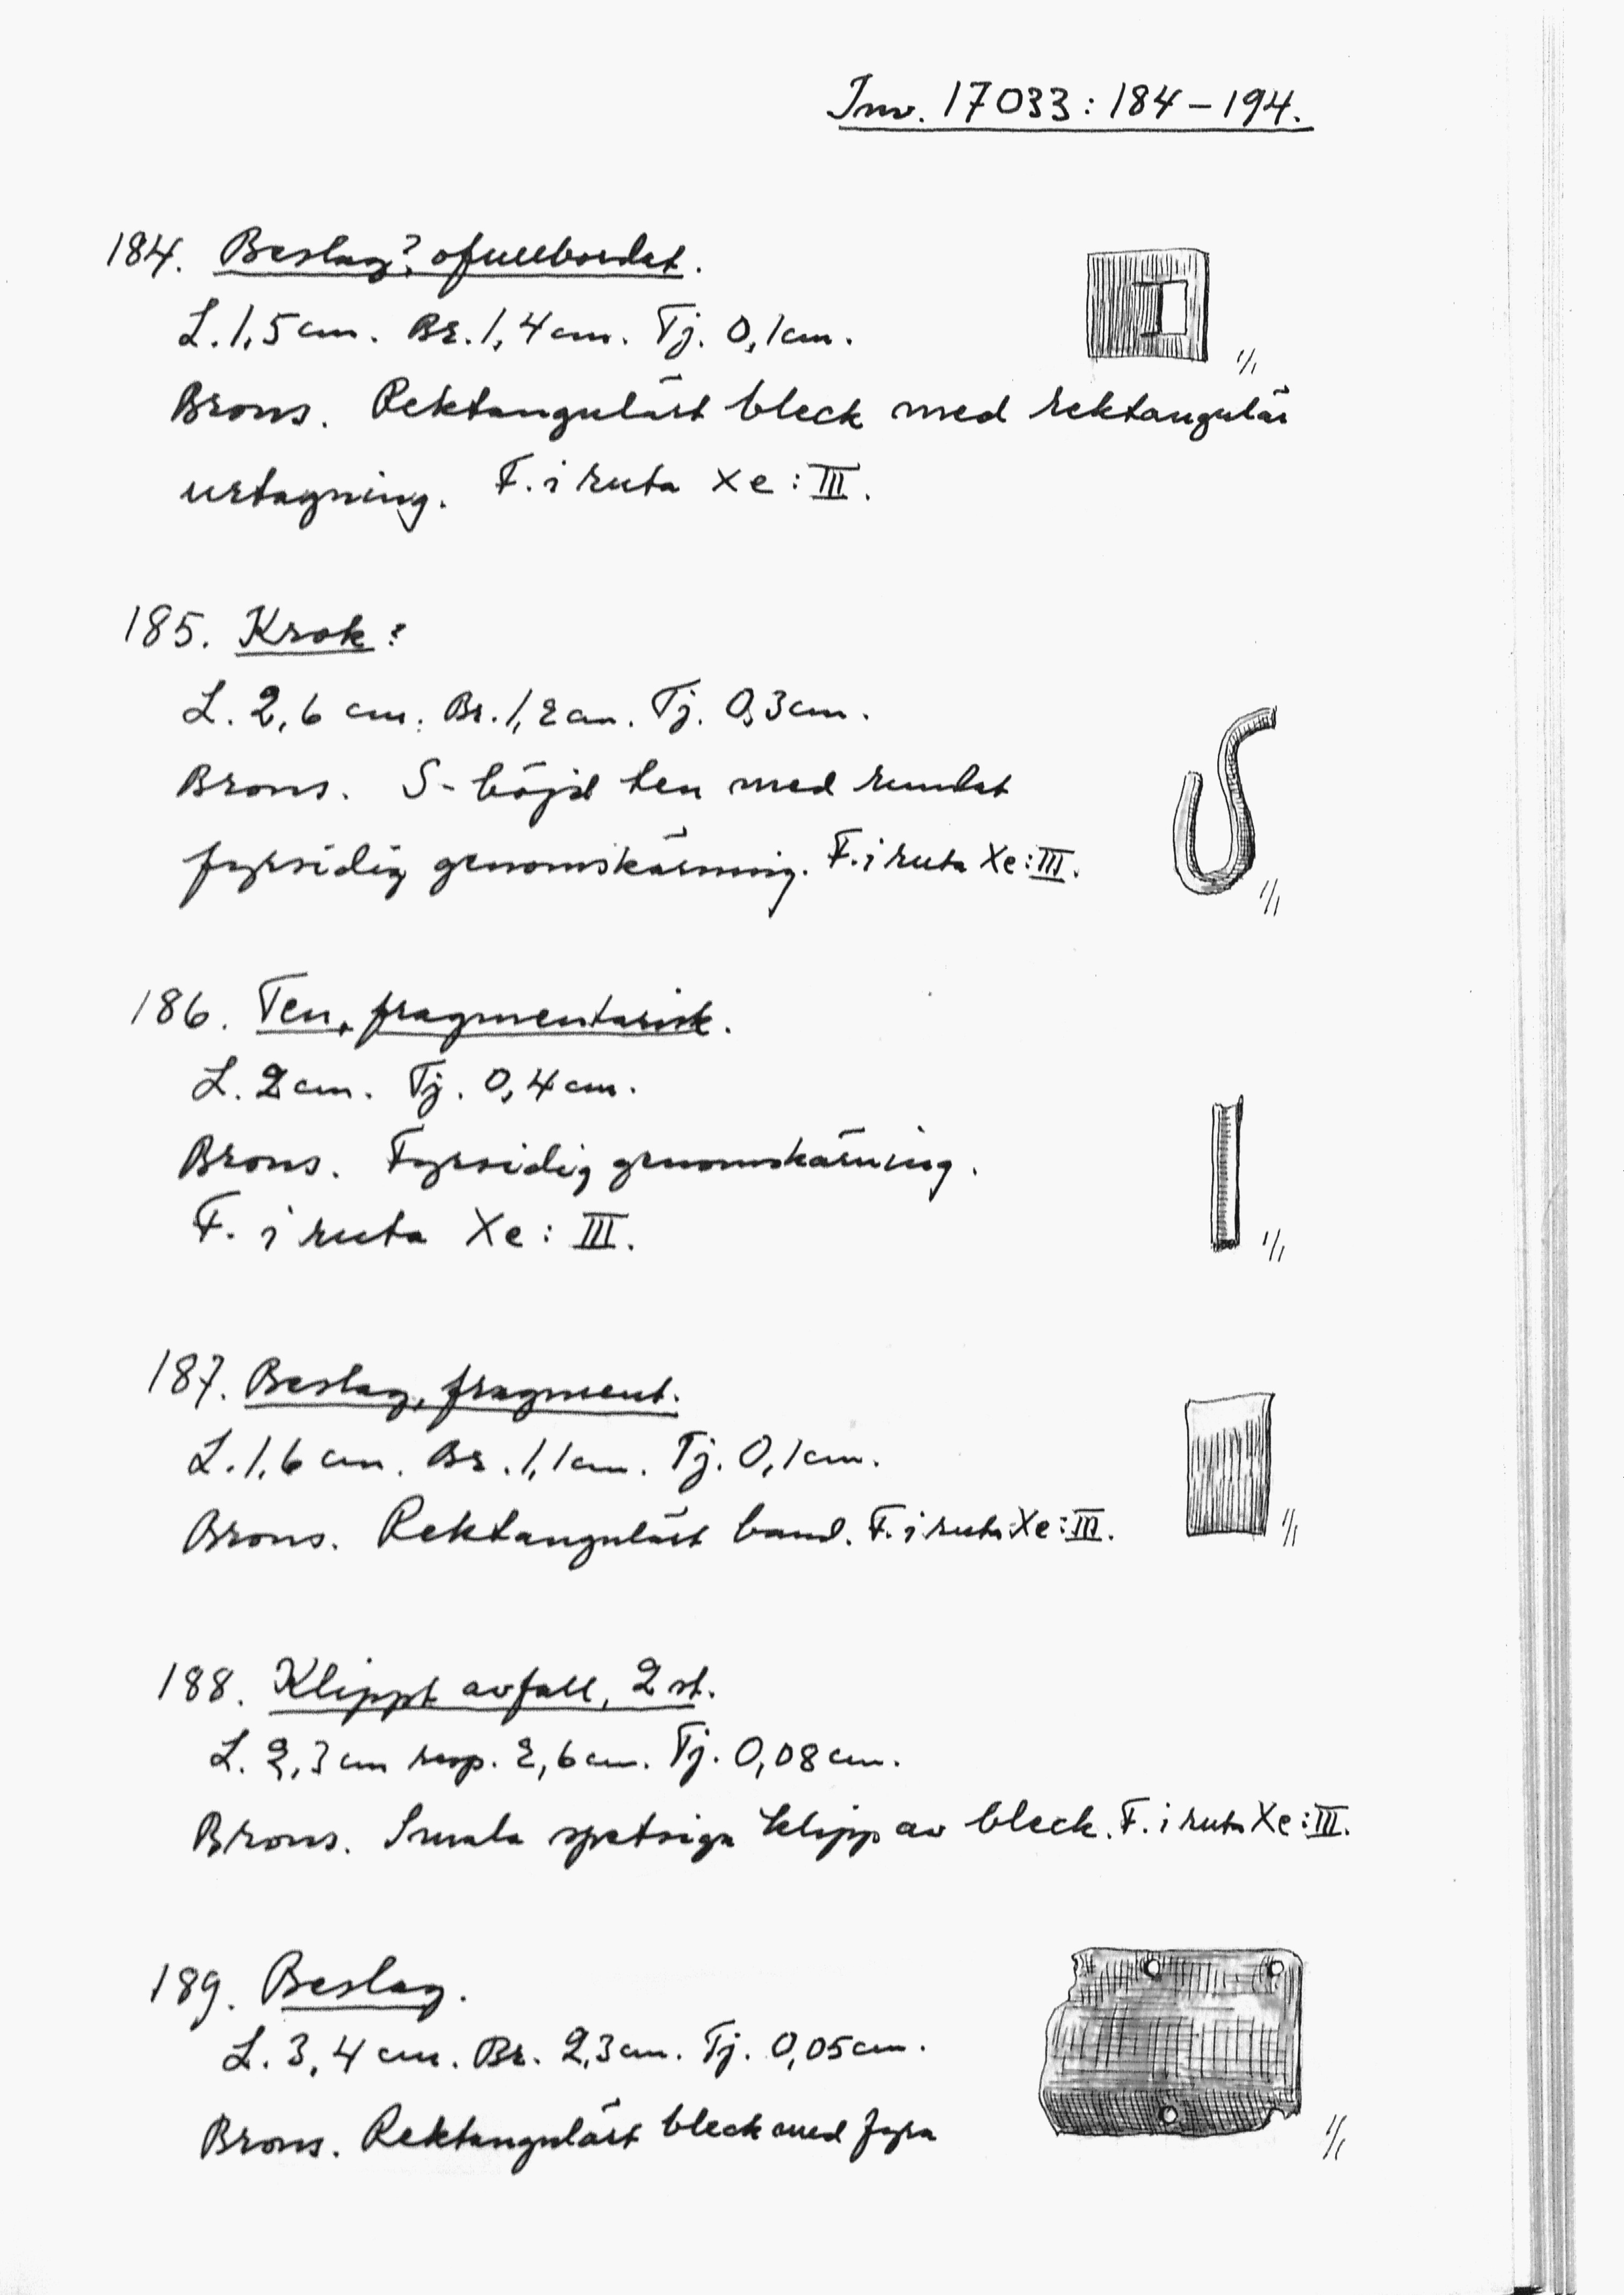 Inv. 17033:184–194.
184. Beslag?, ofullbordat.
L. 1,5 cm. Br. 1,4 cm. Tj. 0,1 cm.
1/1
Brons. Rektangulärt bleck med rektangulär
urtagning. F. i ruta Xe:III.
185. Krok?
L. 2,6 cm. Br. 1,2 cm. Tj. 0,3 cm.
Brons. S-böjd ten med rundat
fyrsidig genomskärning. F. i ruta Xe:III.
1/1
186. Ten, fragmentarisk.
L. 2 cm. Tj. 0,4 cm.
Brons. Fyrsidig genomskärning.
F. i ruta Xe: III.
1/1
187. Beslag, fragment.
L. 1,6 cm. Br. 1,1 cm. Tj. 0,1 cm.
Brons. Rektangulärt band. F. i ruta Xe:III.
1/1
188. Klippt avfall, 2 st.
L. 2,3 cm resp. 2,6 cm. Tj. 0,08 cm.
Brons. Smala spetsiga klipp av bleck. F. i ruta Xe:III.
189. Beslag.
L. 3,4 cm. Br. 2,3 cm. Tj. 0,05 cm.
Brons. Rektangulärt bleck med fyra
1/1